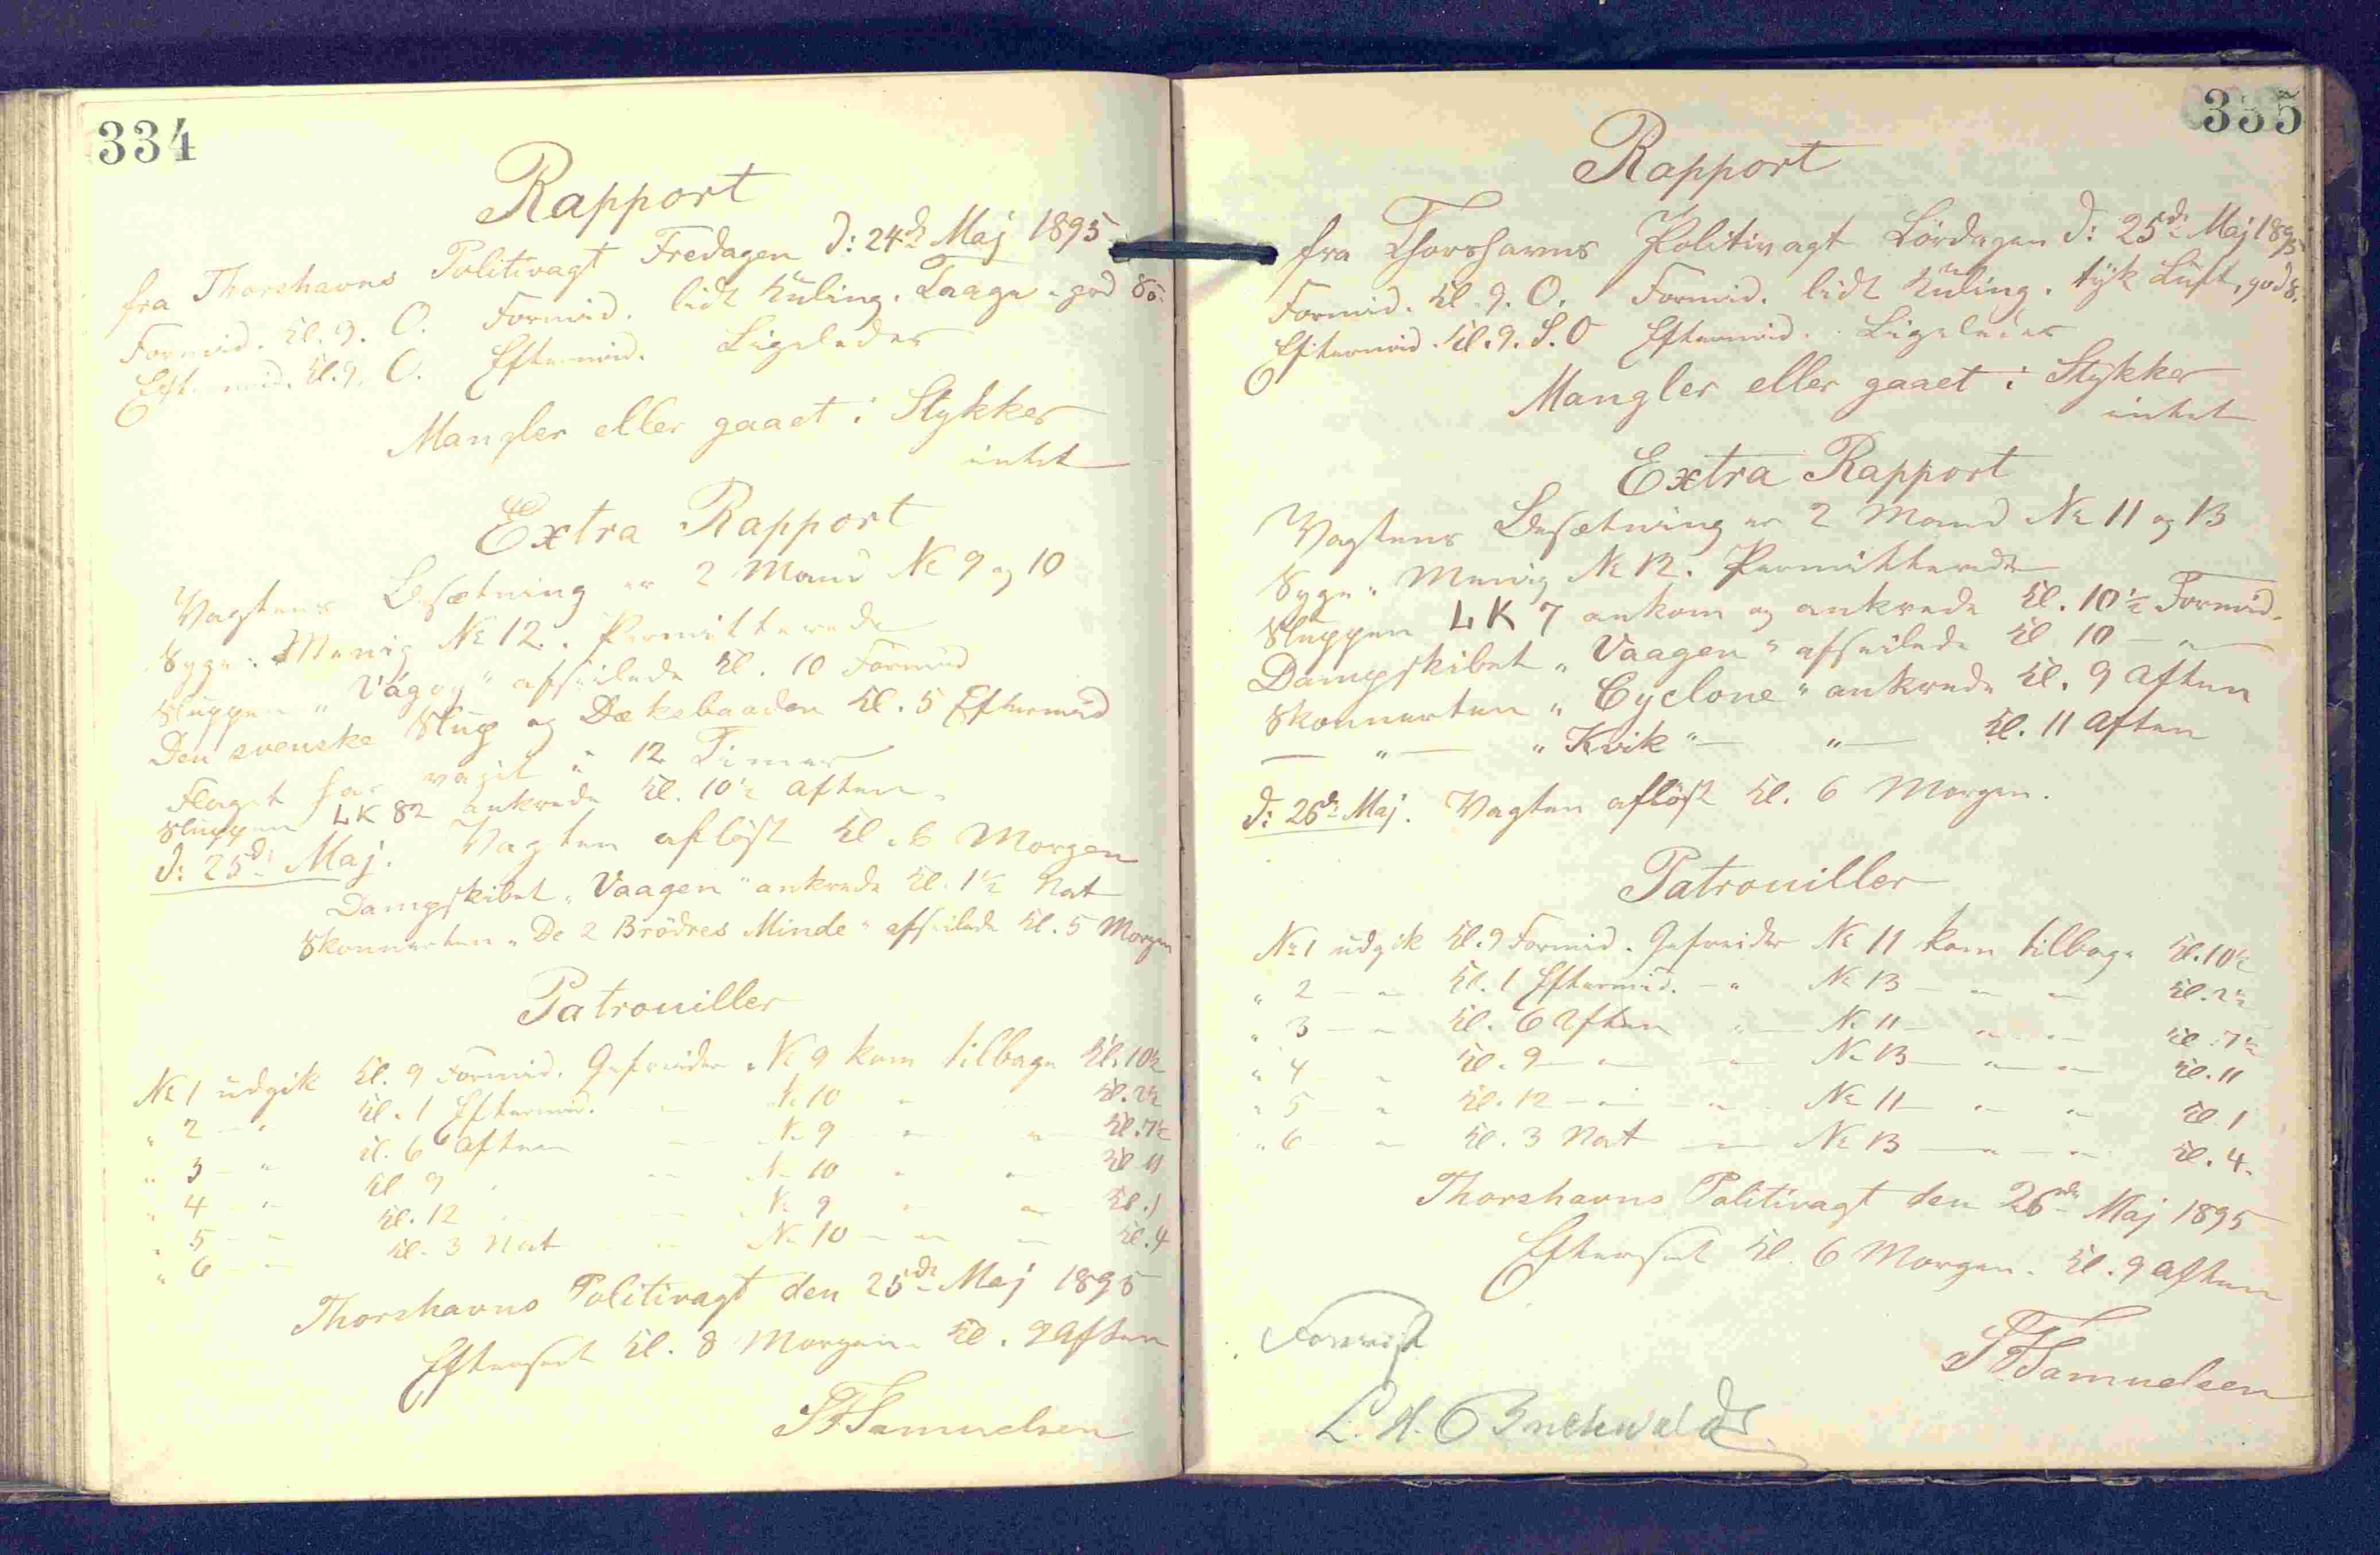 334
Rapport
fra Thorshavns Politivagt Fredagen d: 24de Maj 1895
Formid. Kl. 9. O. Formid. lidt Kuling. Taage. god Sö.
Eftermid. Kl. 9. O. Eftermid. Ligeledes
Mangler eller gaaet i Stykker
intet
Extra Rapport
Vagtens Besætning er 2 Mand No 9 og 10
Syge: Menig No 12. Permitterede
Sluppen "Vágoy" afseilede Kl. 10 Formid
Den svenske Slup og Dæksbaaden Kl. 5 Eftermid
Flaget har vajet i 12 Timer
Sluppen LK 82 ankrede Kl. 10½ Aften.
d: 25de Maj. Vagten aflöst Kl. 6 Morgen
Dampskibet "Vaagen" ankrede Kl. 1½ Nat
Skonnerten "De 2 Brödres Minde" afseilede Kl. 5 Morgen
Patrouiller
No 1 udgik Kl. 9 Formid. Gefreider No 9 kom tilbage Kl. 10½
" 2 — " Kl. 1 Eftermid. — " No 10 " " Kl. 2½
" 3 — " Kl. 6 Aften — No 9 " " Kl. 7½
" 4 — " Kl. 9 " — No 10 " " Kl. 11
" 5 — " Kl. 12 — " — No 9 " " Kl. 1
" 6 — " Kl. 3 Nat — " No 10 — " — Kl. 4
Thorshavns Politivagt den 25de Maj 1895
Efterseet Kl. 8 Morgen. Kl. 9 Aften
Samuelsen
335
Rapport
fra Thorshavns Politivagt Lördagen d: 25de Maj 1895
Formid. Kl. 9. O. Formid. lidt Kuling. tyk Luft, god S.
Eftermid. Kl. 9. S.O Eftermid. Ligeledes
Mangler eller gaaet i Stykker
intet
Extra Rapport
Vagtens Besætning er 2 Mand No 11 og 13
Syge: Menig No 12. Permitterede
Sluppen LK 7 ankom og ankrede Kl. 10½ Formid.
Dampskibet "Vaagen" afseilede Kl 10 — " —
Skonnerten "Cyclone" ankrede Kl. 9 Aften
— " — "Kvik" — " — Kl. 11 Aften
d: 26de Maj. Vagten aflöst Kl. 6 Morgen.
Patrouiller
No 1 udgik Kl. 9 Formid. Gefreider No 11 kom tilbage Kl. 10½
" 2 — " Kl. 1 Eftermid. — " No 13 — " — Kl. 2½
" 3 — " Kl. 6 Aften " — No 11 — " " — Kl. 7½
" 4 " Kl. 9 — " — " No 13 — " — " Kl. 11
" 5 — " Kl. 12 — " — " No 11 — " — " Kl. 1
" 6 — " Kl. 3 Nat — " No 13 — " — " Kl. 4.
Thorshavns Politivagt den 26de Maj 1895
Efterseet Kl. 6 Morgen. Kl. 9 Aften
Samuelsen
Forevist
L. H. Buchwaldt